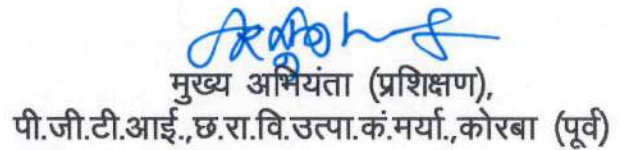 मुख्य अभियंता (प्रशिक्षण),
पी.जी.टी.आई.,छ.रा.वि.उत्पा.कं.मर्या.,कोरबा (पूर्व)